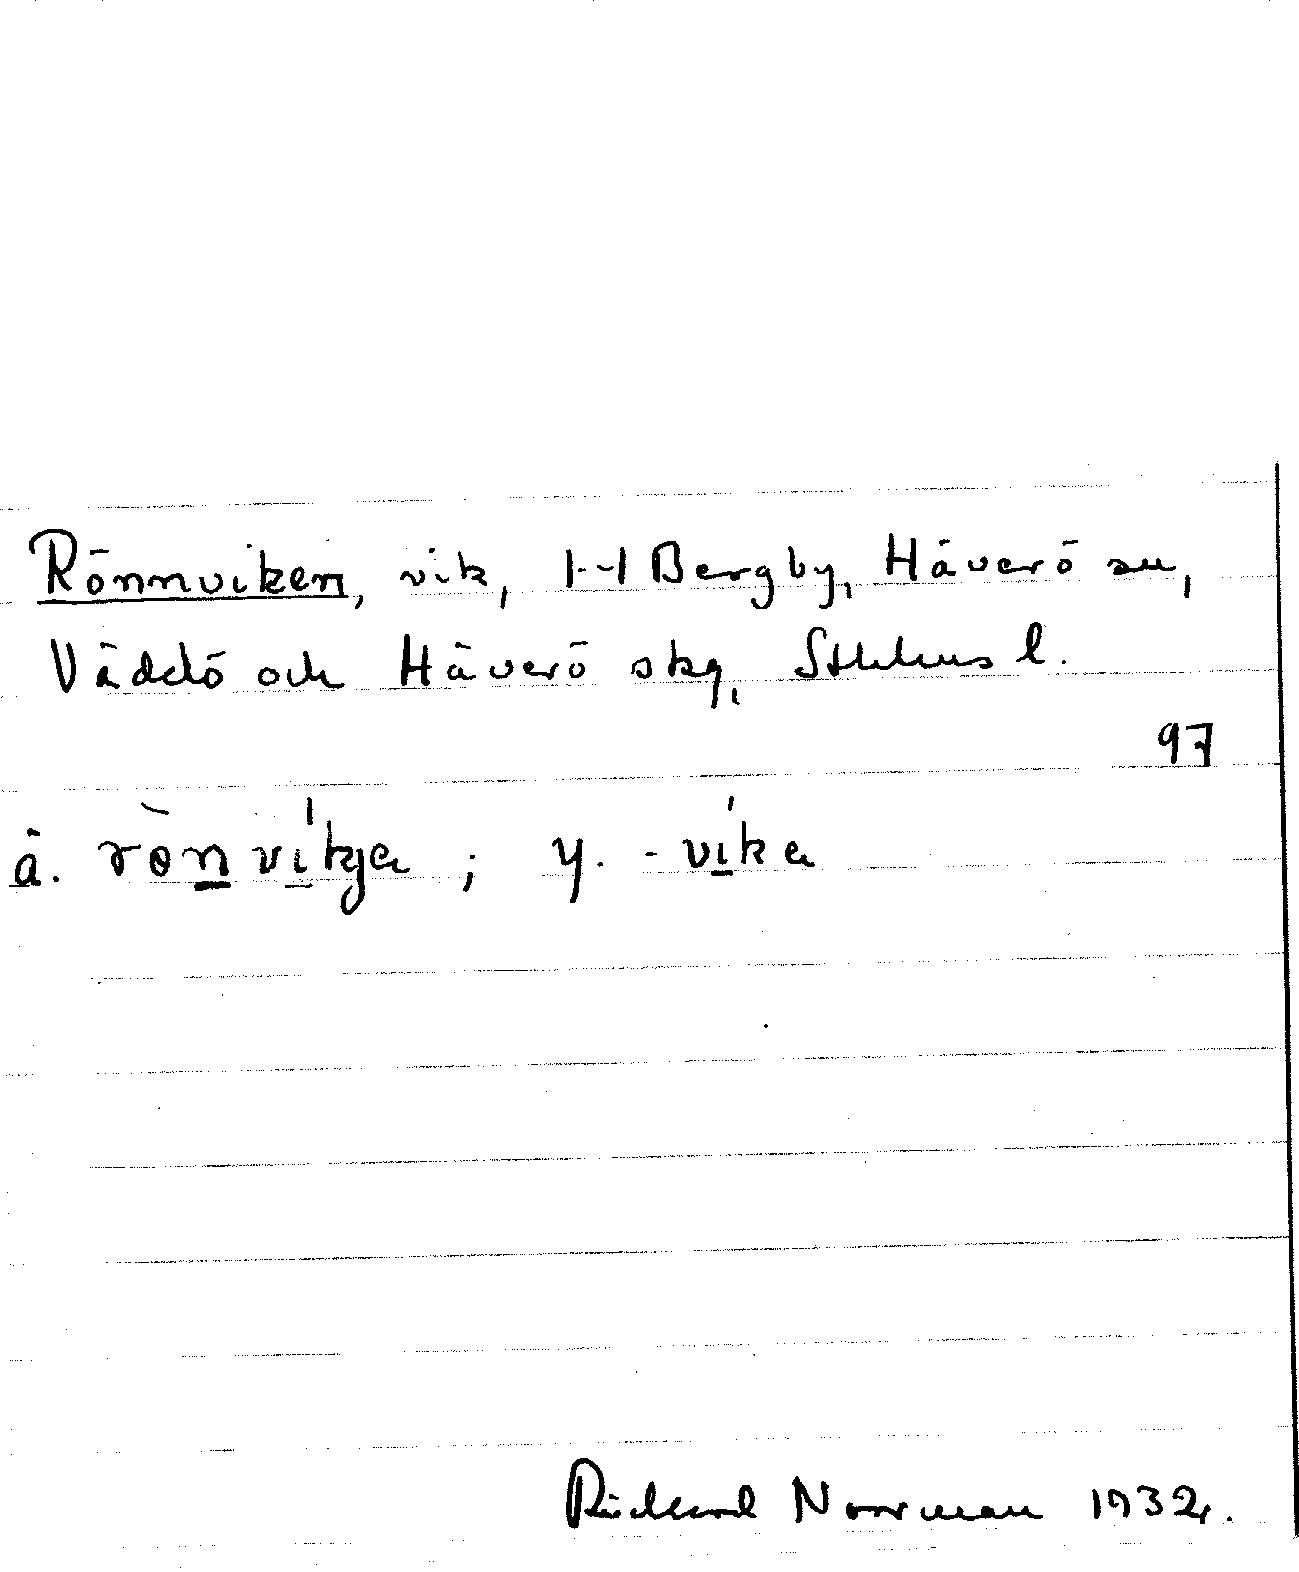 Rönnviken, vik, 1-1 Bergby, Häverö sn,
Väddö och Häverö skg, Sthlms l.
97
ä. rönvikja ; y. -vika
Rickard Norrman 1932.